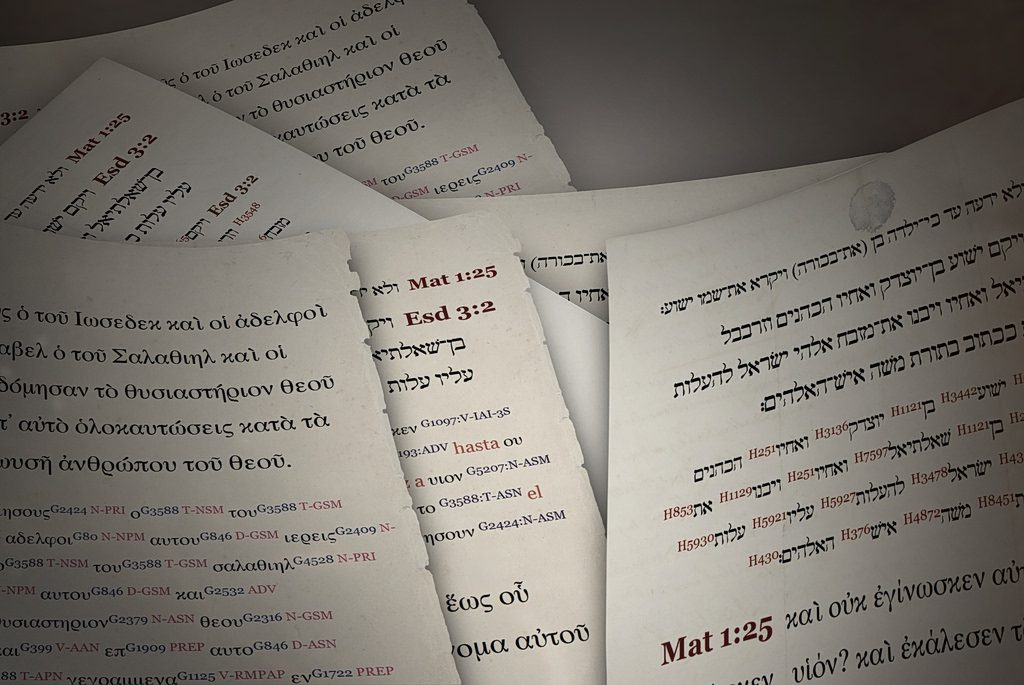 ὁ τοῦ Ιωσεδεκ καὶ οἱ
ὁ τοῦ Σαλαθιηλ καὶ οἱ
τὸ θυσιαστήριον θεοῦ
κατὰ τὰ
τοῦ θεοῦ.
τουG3588 T-GSM
D-GSM ιερειςG2409 N-
N-PRI
3:2
Mat 1:25 ולא ידעה עד
Esd 3:2 ויקם
בן־שאלתיאל
עליו עלות
Esd 3:2 ויקם
H3548
ὁ τοῦ Ιωσεδεκ καὶ οἱ ἀδελφοὶ
ὁ τοῦ Σαλαθιηλ καὶ οἱ
τὸ θυσιαστήριον θεοῦ
αὐτὸ ὁλοκαυτώσεις κατὰ τὰ
ἀνθρώπου τοῦ θεοῦ.
G2424 N-PRI οG3588 T-NSM τουG3588 T-GSM
αδελφοιG80 N-NPM αυτουG846 D-GSM ιερειςG2409 N-
G3588 T-NSM τουG3588 T-GSM σαλαθιηλG4528 N-PRI
-NPM αυτουG846 D-GSM καιG2532 ADV
G2379 N-ASN θεουG2316 N-GSM
G399 V-AAN επG1909 PREP αυτοG846 D-ASN
88 T-APN γεγραμμεναG1125 V-RMPAP ενG1722 PREP
Mat 1:25 ולא
Esd 3:2
בן־שאלתיא
עליו עלות
κεν G1097:V-IAI-3S
193:ADV hasta ου
a υιον G5207:N-ASM
το G3588:T-ASN el
ησουν G2424:N-ASM
ἕως οὗ
αὐτοῦ
את־בכורה)
ולא ידעה עד כי־ילדה בן (את־בכורה) ויקרא את־שמו ישוע:
ויקם ישוע בן־יוצדק ואחיו הכהנים וזרבבל
ואחיו ויבנו את־מזבח אלהי ישראל להעלות
ככתוב בתורת משה איש־האלהים:
ישועH3442 בןH1121 יוצדקH3136 ואחיוH251 הכהנים
בןH1121 שאלתיאלH7597 ואחיוH251 ויבנוH1129 אתH853
ישראלH3478 להעלותH5927 עליוH5921 עלותH5930
H8451 משהH4872 אישH376 האלהים:H430
Mat 1:25 καὶ οὐκ ἐγίνωσκεν
υἱόν? καὶ ἐκάλεσεν